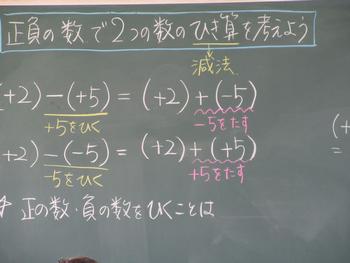 正負の数で2つの数のひき算を考えよう
減法
(+2)-(+5)=(+2)+(-5)
+5をひく -5をたす
+2)-(-5)=(+2)+(+5)
-5をひく +5をたす
正の数・負の数をひくことは
(+
=